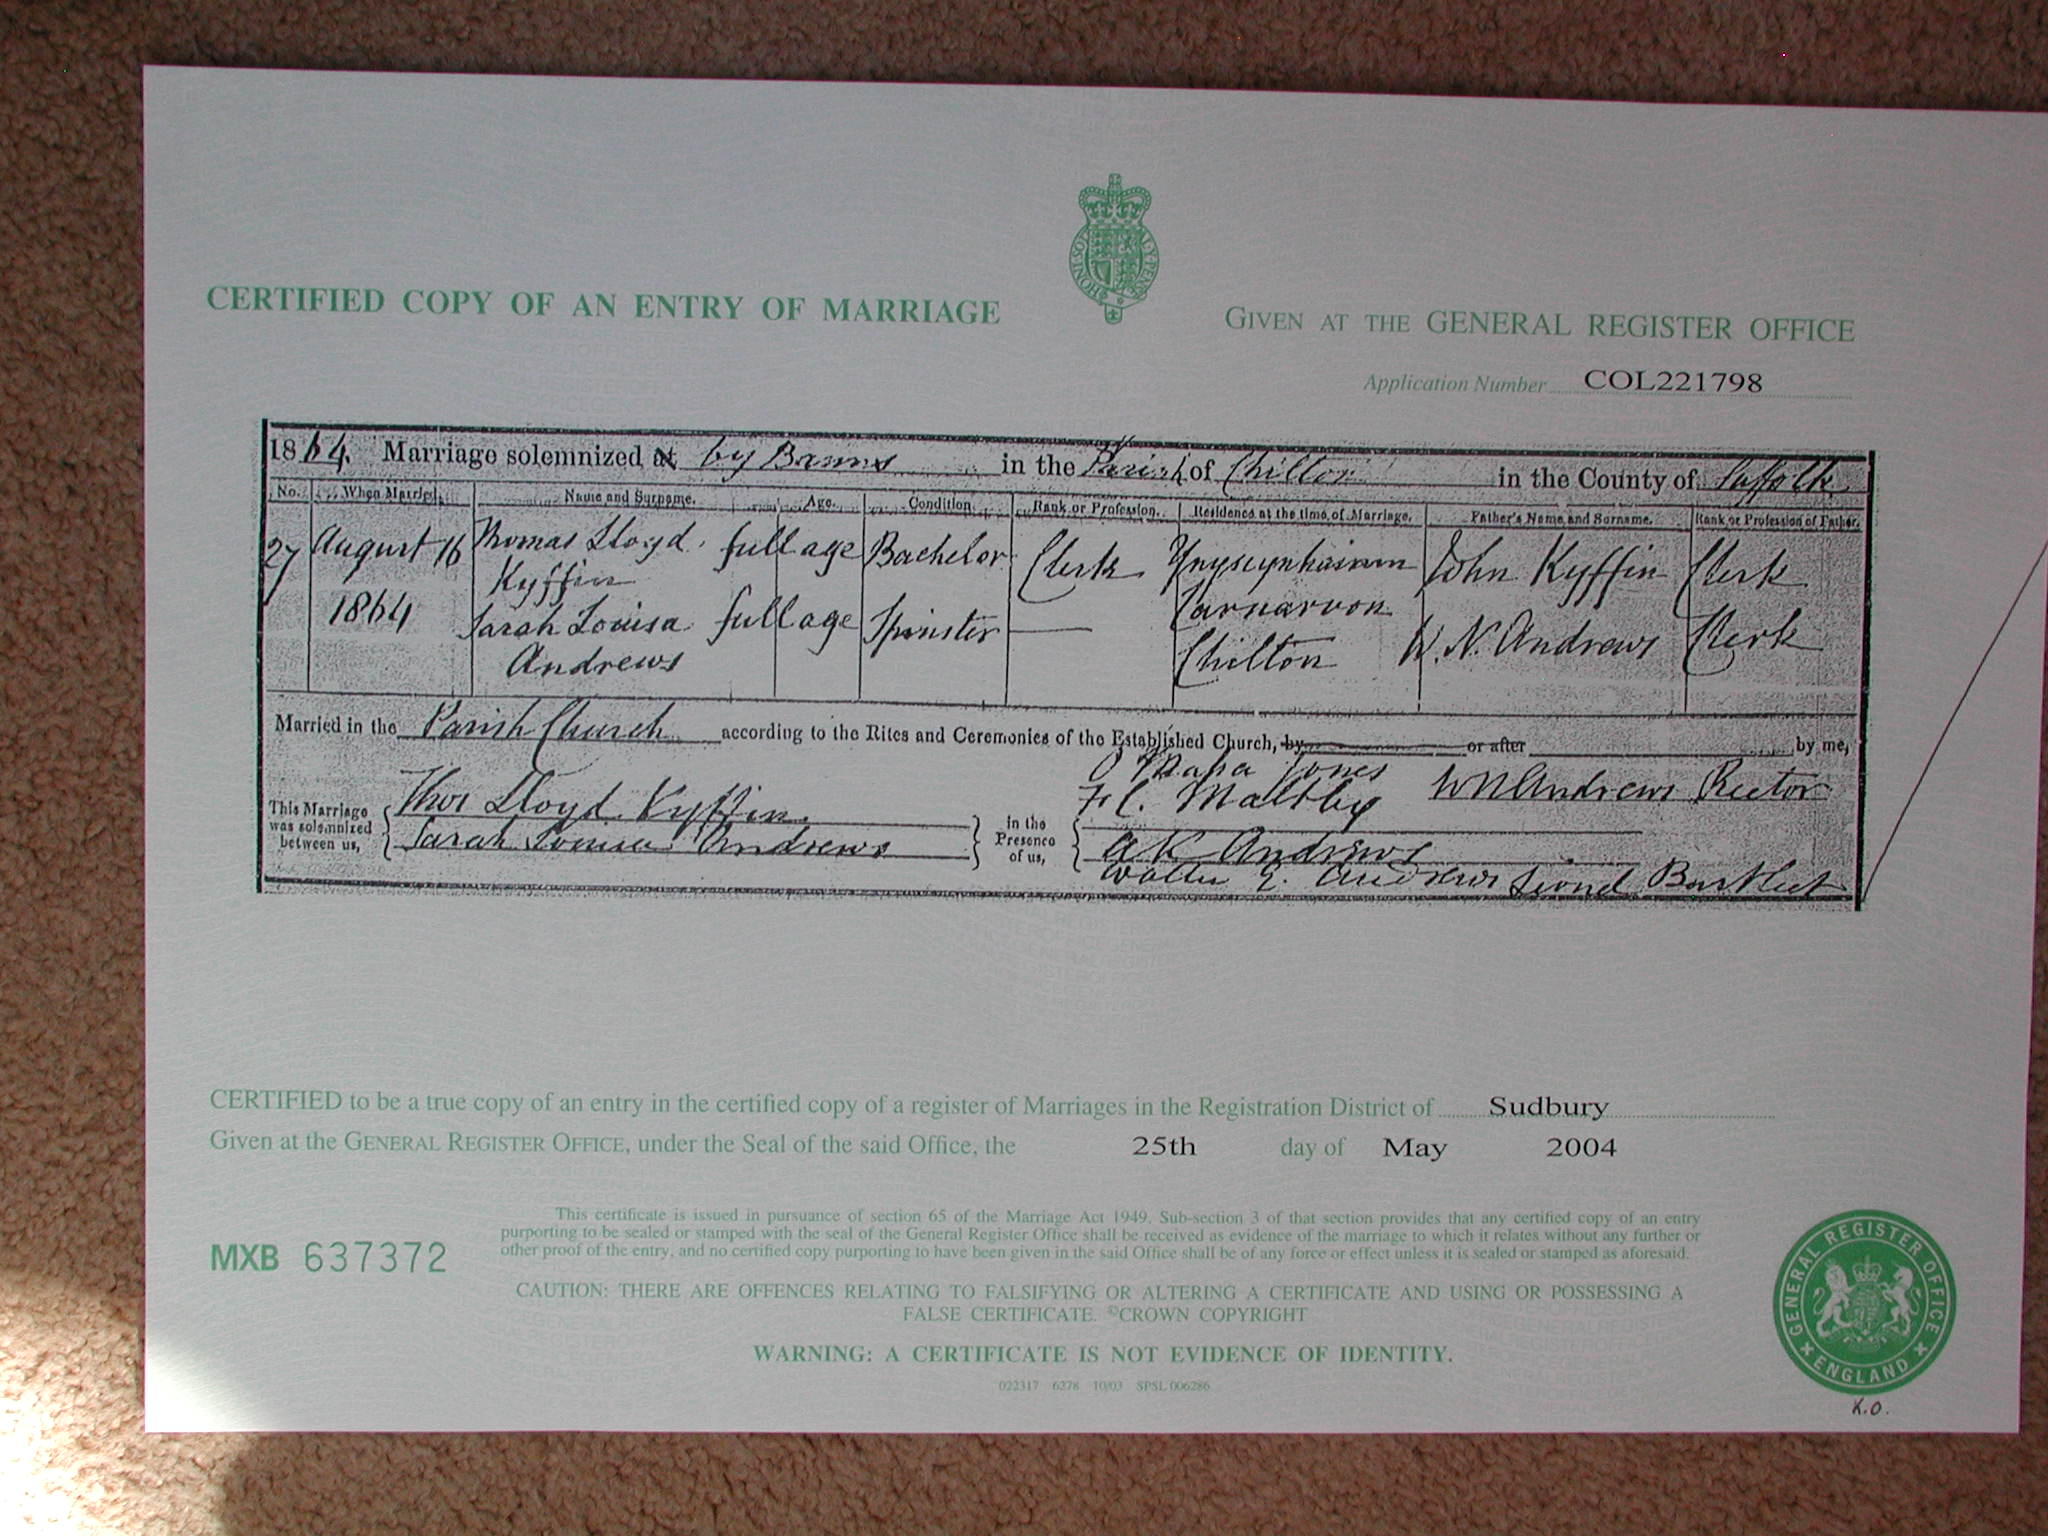 CERTIFIED COPY OF AN ENTRY OF MARRIAGE
GIVEN AT THE GENERAL REGISTER OFFICE
Application Number COL221798
1864. Marriage solemnized at by Banns in the Parish of Chilton in the County of Suffolk
No. When Married Name and Surname. Age. Condition. Rank or Profession. Residence at the time of Marriage. Father's Name and Surname. Rank or Profession of Father.
27 August 16 Thomas Lloyd full age Bachelor Clerk John Kyffin Clerk
Kyffin
1864 Carnarvon
Sarah Louisa full age Spinster W. N. Andrews Clerk
Andrews Chilton
Married in the Parish Church according to the Rites and Ceremonies of the Established Church, by or after by me,
Jones
Thos Lloyd Kyffin Maltby WN Andrews Rector
This Marriage was solemnized between us,
Sarah Louisa Andrews
in the Presence of us,
A K Andrews
Walter E. Andrews Lionel Bartleet
CERTIFIED to be a true copy of an entry in the certified copy of a register of Marriages in the Registration District of Sudbury
Given at the GENERAL REGISTER OFFICE, under the Seal of the said Office, the 25th day of May 2004
This certificate is issued in pursuance of section 65 of the Marriage Act 1949. Sub-section 3 of that section provides that any certified copy of an entry
purporting to be sealed or stamped with the seal of the General Register Office shall be received as evidence of the marriage to which it relates without any further or
other proof of the entry, and no certified copy purporting to have been given in the said Office shall be of any force or effect unless it is sealed or stamped as aforesaid.
MXB 637372
CAUTION: THERE ARE OFFENCES RELATING TO FALSIFYING OR ALTERING A CERTIFICATE AND USING OR POSSESSING A
FALSE CERTIFICATE. ©CROWN COPYRIGHT
WARNING: A CERTIFICATE IS NOT EVIDENCE OF IDENTITY.
022317 6278 10/03 SPSL 006286
GENERAL REGISTER OFFICE
ENGLAND
K.O.